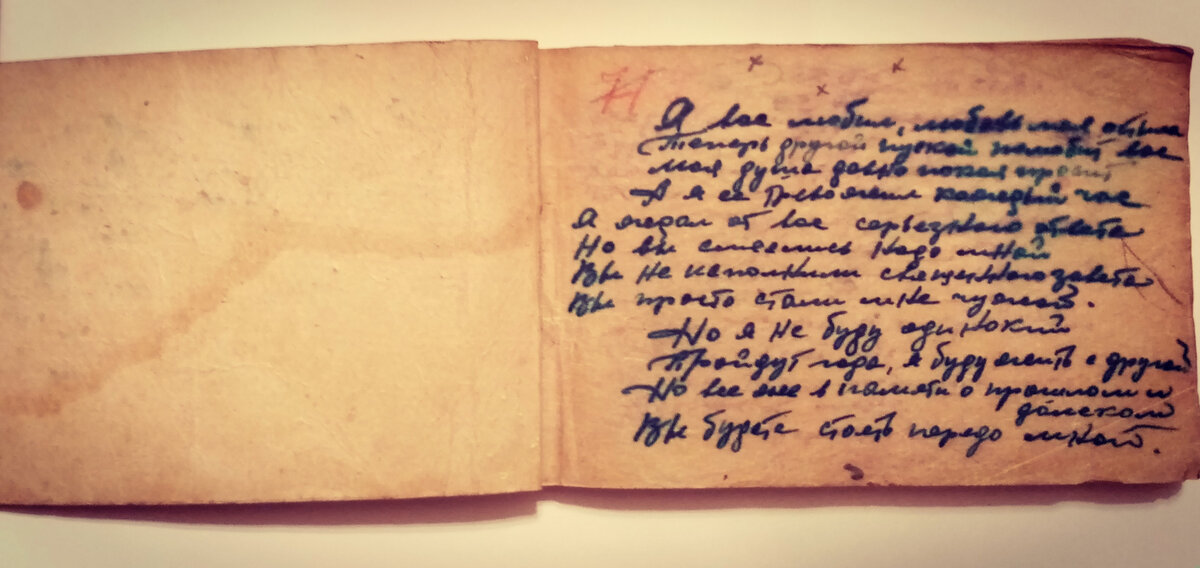 71
х х
х
Я вас любил, любовь моя была
Теперь другой пускай полюбит вас
Моя душа давно покоя просит
А я ее тревожил каждый час
Я ждал от вас серьезного ответа
Но вы смеялись надо мной
Вы не исполнили священного завета
Вы просто стали мне чужой.
Но я не буду одинокий
Пройдут года, я буду жить с другой
Но все же в памяти о прошлом и
далеком
Вы будете стоять передо мной.